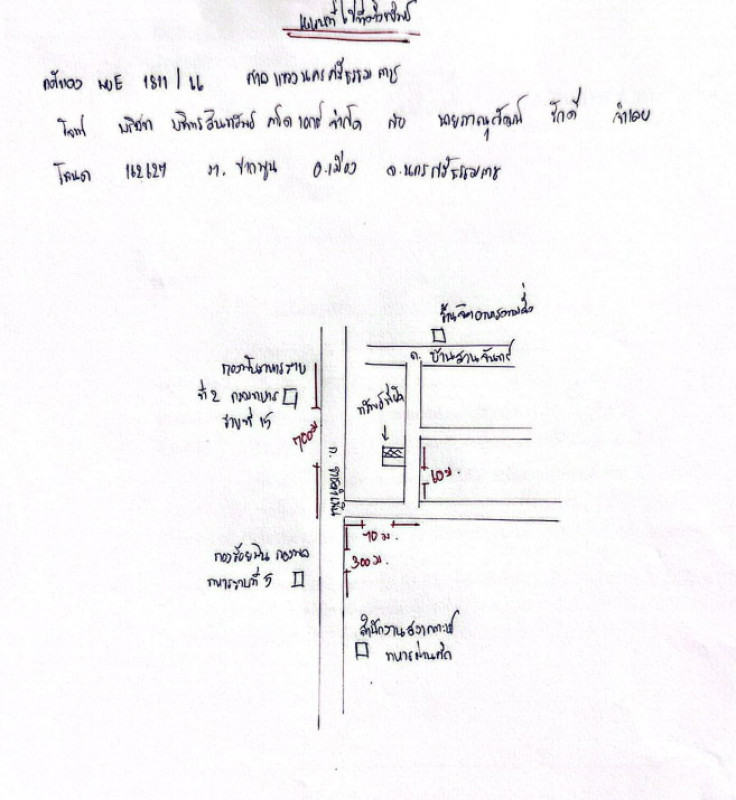 แผนที่ไปที่ตั้งทรัพย์
คดีแดง ผบE 1811/66 ศาลแขวงนครศรีธรรมราช
โจทก์ บริษัท บริหารสินทรัพย์ จำกัด กับ นายภาณุวัฒน์ รักดี จำเลย
โฉนด 162627 ต. ปากพูน อ.เมือง จ.นครศรีธรรมราช
ร้านอาหารตามสั่ง
ถ. บ้านสวนจันทร์
กองพันทหารราบ
ที่ 2 กรมทหาร
ราบที่ 15
700 ม
ทรัพย์ที่ยึด
ถ. ราชดำเนิน
60 ม.
70 ม.
300 ม.
กองร้อย กองพล
ทหารราบที่ 5
สำนักงานสงเคราะห์
ทหารผ่านศึก